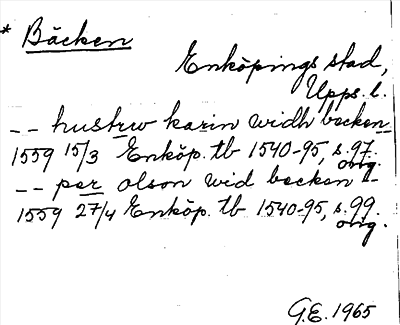 * Bäcken
Enköpings stad,
Upps. l.
-- hustrw karin widh becken --
1559 15/3 Enköp. tb 1540-95, s. 97.
orig.
-- per olson wid becken --
1559 27/4 Enköp. tb 1540-95, s. 99.
orig.
G.E. 1965